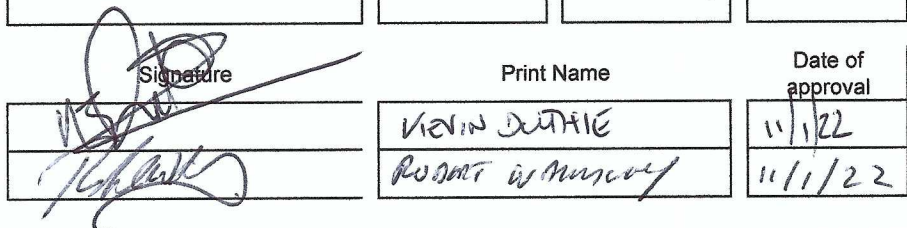 Signature Print Name Date of
approval
KEVIN DUTHIE 11/1/22
ROBERT W 11/1/22